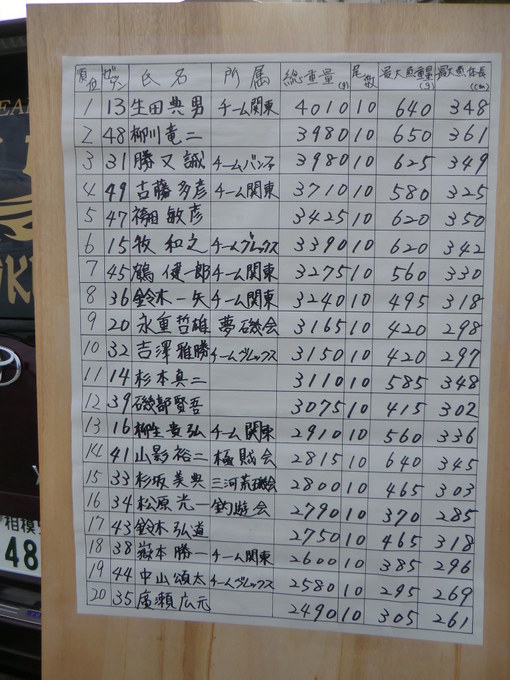 順位 ゼッケン 氏名 所属 総重量(g) 尾数 最大魚重量(g) 最大魚体長(cm)
1 13 生田典男 チーム関東 4010 10 640 348
2 48 柳川竜二 3980 10 650 361
3 31 勝又誠 チーム 3980 10 625 349
4 49 古藤多彦 チーム関東 3710 10 580 325
5 47 敏彦 3425 10 620 350
6 15 牧和之 チームブレックス 3390 10 620 342
7 45 鶴健一郎 チーム関東 3275 10 560 330
8 36 鈴木一矢 チーム関東 3240 10 495 318
9 20 永重哲雄 夢磯会 3165 10 420 298
10 32 吉澤雅勝 チームブレックス 3150 10 420 297
11 14 杉本真二 3110 10 585 348
12 39 磯部賢吾 3075 10 415 302
13 16 柳生貴弘 チーム関東 2910 10 560 336
14 41 山影裕二 極賊会 2815 10 640 345
15 33 杉坂美典 三河荒磯会 2800 10 465 303
16 34 松原光一 釣遊会 2790 10 370 285
17 43 鈴木弘道 2750 10 465 318
18 38 嶽本勝一 チーム関東 2600 10 385 296
19 44 中山頌太 チームブレックス 2580 10 295 269
20 35 廣瀬広元 2490 10 305 261
相模
48